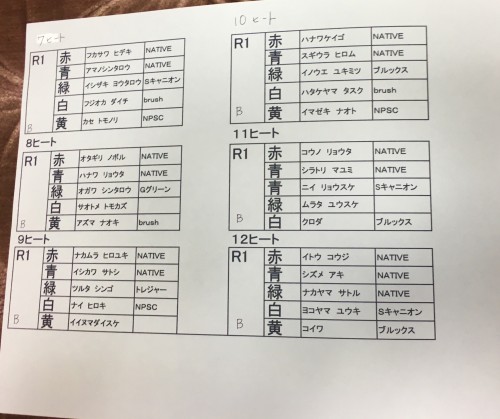 7ヒート
R1 赤 フカサワ ヒデキ NATIVE
青 アマノシンタロウ NATIVE
緑 イシザキ ヨウタロウ Sキャニオン
白 フジオカ ダイチ brush
B 黄 カセ トモノリ NPSC
8ヒート
R1 赤 オタギリ ノボル NATIVE
青 ハナワ リョウタ NATIVE
緑 オガワ シンタロウ Gグリーン
白 サオトメ トモカズ
B 黄 アズマ ナオキ brush
9ヒート
R1 赤 ナカムラ ヒロユキ NATIVE
青 イシカワ サトシ NATIVE
緑 ツルタ シンゴ トレジャー
白 ナイ ヒロキ NPSC
B 黄 イイヌマダイスケ
10ヒート
R1 赤 ハナワケイゴ NATIVE
青 スギウラ ヒロム NATIVE
緑 イノウエ ユキミツ ブルックス
白 ハタケヤマ タスク brush
B 黄 イマゼキ ナオト NPSC
11ヒート
R1 赤 コウノ リョウタ NATIVE
青 シラトリ マユミ NATIVE
緑 ニイ リョウスケ Sキャニオン
黄 ムラタ ユウスケ
B 白 クロダ ブルックス
12ヒート
R1 赤 イトウ コウジ NATIVE
青 シズメ アキ NATIVE
緑 ナカヤマ サトル NATIVE
白 ヨコヤマ ユウキ Sキャニオン
B 黄 コイワ ブルックス